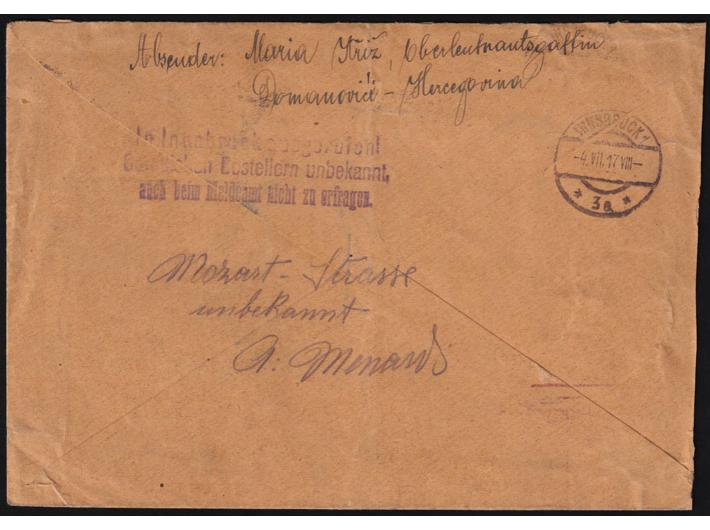 Absender: Maria Križ, Oberleutnantsgattin
Domanovići - Hercegovina
In Innsbruck ausgerufen!
Bestellern unbekannt,
auch beim Meldeamt nicht zu erfragen.
INNSBRUCK 1
-4.VII.17 VIII-
* 3a *
Mozart-Strasse
unbekannt
A: Menardi